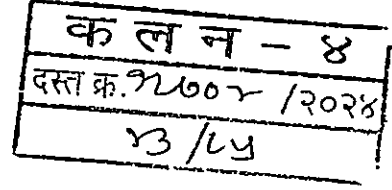 क ल न - ४
दस्त क्र. १७०२ /२०२४
४३ /८५